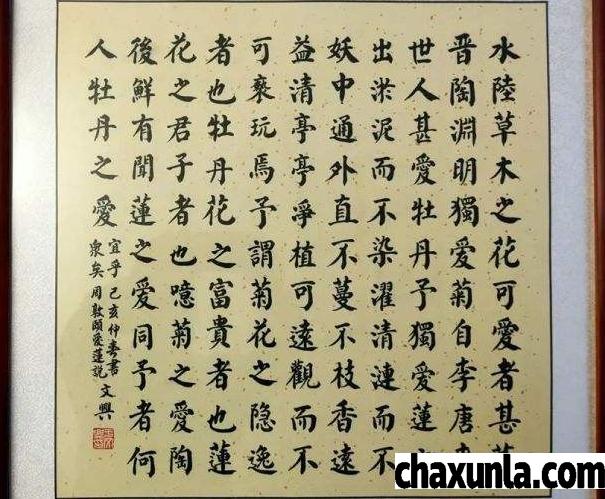 水陸草木之花可愛者甚
晉陶淵明獨愛菊自李唐
世人甚愛牡丹予獨愛蓮
出淤泥而不染濯清漣而不
妖中通外直不蔓不枝香遠
益清亭亭淨植可遠觀而不
可褻玩焉予謂菊花之隐逸
者也牡丹花之富貴者也蓮
花之君子者也噫菊之愛陶
後鮮有聞蓮之愛同予者何
人牡丹之愛
宜乎己亥仲春書文興
衆矣周敦頤愛蓮説
chaxunla.com